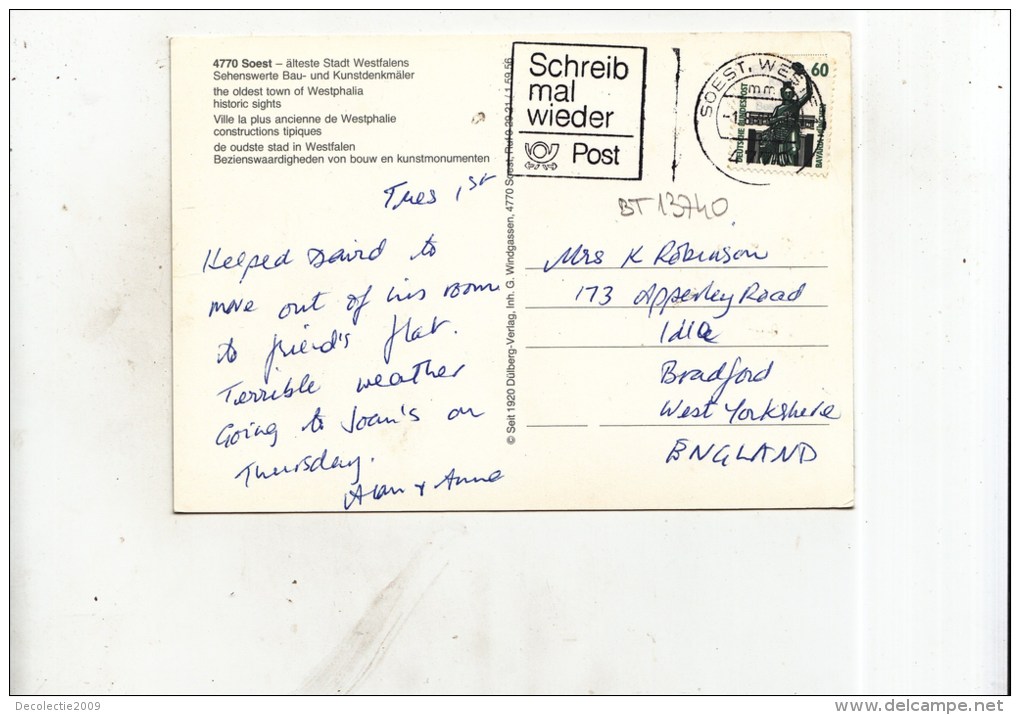 4770 Soest – älteste Stadt Westfalens
Sehenswerte Bau- und Kunstdenkmäler
the oldest town of Westphalia
historic sights
Ville la plus ancienne de Westphalie
constructions tipiques
de oudste stad in Westfalen
Bezienswaardigheden von bouw en kunstmonumenten
Tues 1st
Helped David to
move out of his room
to friend's flat.
Terrible weather
Going to Joan's on
Thursday.
Alan & Anne
© Seit 1920 Dülberg-Verlag, Inh. G. Windgassen, 4770 Soest, Ruf 0 29 21 / 1 59 56
Schreib
mal
wieder
Post
SOEST, WESTF
60
DEUTSCHE BUNDESPOST
BAVARIA MÜNCHEN
BT 13740
Mrs K Robinson
173 Apperley Road
Idle
Bradford
West Yorkshire
ENGLAND
Decolectie2009
www.delcampe.net